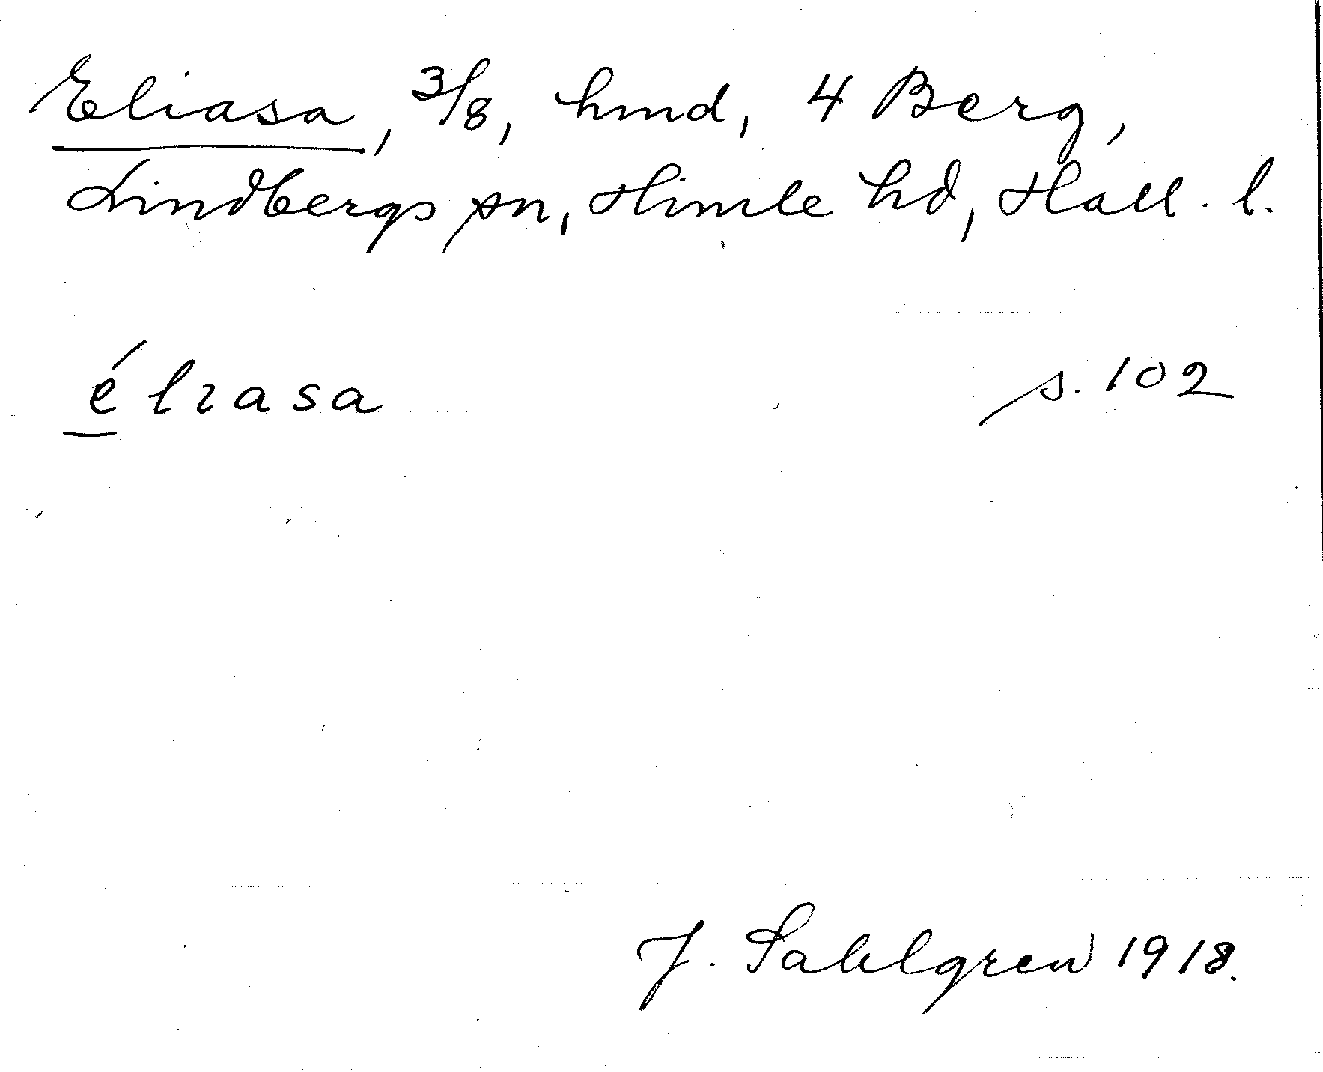 Eliasa, 3/8, hmd, 4 Berg,
Lindbergs sn, Himle hd, Hall. l.
élıasa s. 102
J. Sahlgren 1918.